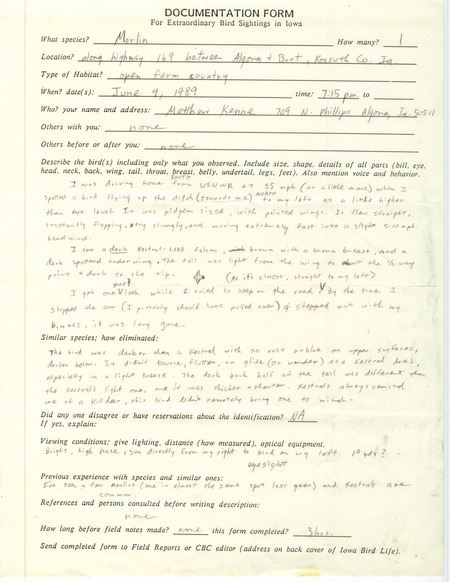 DOCUMENTATION FORM
For Extraordinary Bird Sightings in Iowa
What species? Merlin How many? 1
Location? along highway 169 between Algona & Burt, Kossuth Co. Ia.
Type of Habitat? open farm country
When? date(s): June 4, 1989 time: 7:15 pm to
Who? your name and address: Matthew Kenne 709 N. Phillips Algona, Ia. 50511
Others with you: none
Others before or after you: none
Describe the bird(s) including only what you observed. Include size, shape, details of all parts (bill, eye,
head, neck, back, wing, tail, throat, breast, belly, undertail, legs, feet). Also mention voice and behavior.
I was driving home south from USNWR at 55 mph (or a little more) when I
spotted a bird flying up the ditch (towards me) north to my left at a little higher
than eye level. It was pidgeon sized, with pointed wings. It flew straight,
constantly flapping, very strongly, and moving extremely fast into a slight 5-10 mph
headwind.
I saw a dark Kestrel-like falcon, brown with a brown breast, and a
dark spotted underwing. The tail was light from the wing to the 1/2 way
point & dark to the tip. (As it was closest, straight to my left)
I got one good look while I tried to keep on the road. By the time I
stopped the car (I probably should have pulled over) & stepped out with my
binocs, it was long gone.
Similar species; how eliminated:
The bird was darker than a Kestrel with no rust or blue on upper surfaces,
darker below. It didn't bounce, flutter, or glide (or wander) as a Kestrel does,
especially in a light breeze. The dark back half of the tail was different than
the Kestrel's light one, and it was thicker & shorter. Kestrels always remind
me of a Killdeer, this bird didn't remotely bring one to mind.
Did any one disagree or have reservations about the identification? NA
If yes, explain:
Viewing conditions: give lighting, distance (how measured), optical equipment.
Bright, high haze, sun directly from my right to bird on my left. 10 yds? ...
eyesight
Previous experience with species and similar ones:
I've seen a few Merlins (one in almost the same spot last year) and Kestrels are
common.
References and persons consulted before writing description:
none
How long before field notes made? none this form completed? 3 hrs.
Send completed form to Field Reports or CBC editor (address on back cover of Iowa Bird Life).